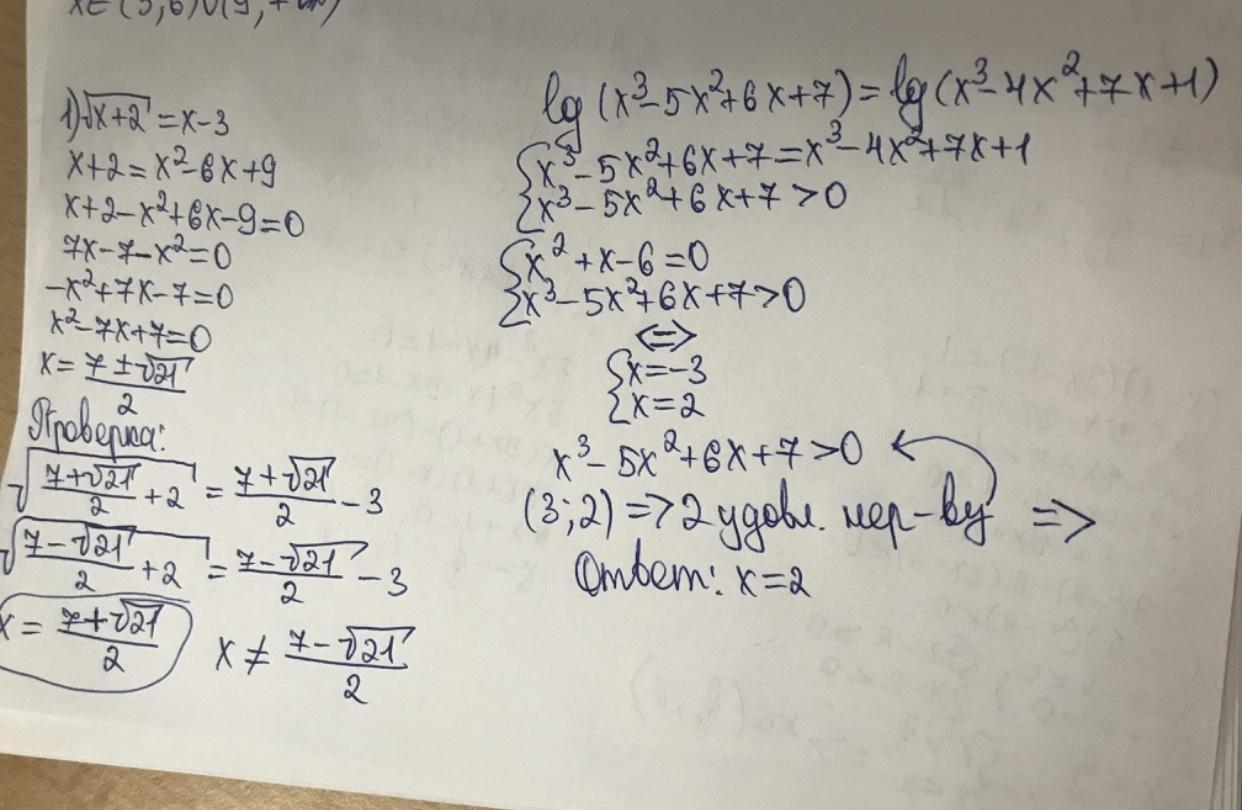 x∈(3;6)∪(9;+∞)
1) √(x+2) = x-3
x+2=x²-6x+9
x+2-x²+6x-9=0
7x-7-x²=0
-x²+7x-7=0
x²-7x+7=0
x= (7±√21)/2
Проверка:
√((7+√21)/2 +2) = (7+√21)/2 -3
√((7-√21)/2 +2) = (7-√21)/2 -3
x= (7+√21)/2 x≠ (7-√21)/2
lg (x³-5x²+6x+7)=lg(x³-4x²+7x+1)
{x³-5x²+6x+7=x³-4x²+7x+1
{x³-5x²+6x+7>0
{x²+x-6=0
{x³-5x²+6x+7>0
<=>
{x=-3
{x=2
x³-5x²+6x+7>0 ←
(3;2) => 2 удовл. нер-ву =>
Ответ: x=2